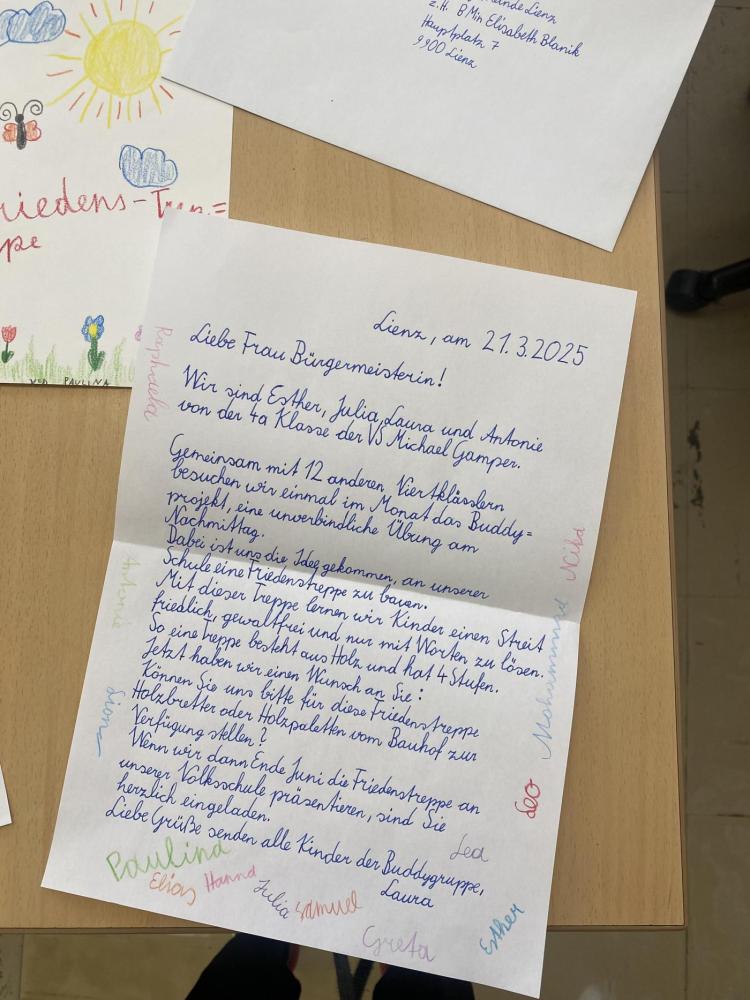 z.H. BMin Elisabeth Blanik
Hauptplatz 7
9900 Lienz
riedens-Trep=
pe
VON PAULINA
Lienz, am 21.3.2025
Liebe Frau Bürgermeisterin!
Wir sind Esther, Julia, Laura und Antonie
von der 4a Klasse der VS Michael Gamper.
Gemeinsam mit 12 anderen Viertklässlern
besuchen wir einmal im Monat das Buddy=
projekt, eine unverbindliche Übung am
Nachmittag.
Dabei ist uns die Idee gekommen, an unserer
Schule eine Friedenstreppe zu bauen.
Mit dieser Treppe lernen wir Kinder einen Streit
friedlich, gewaltfrei und nur mit Worten zu lösen.
So eine Treppe besteht aus Holz und hat 4 Stufen.
Jetzt haben wir einen Wunsch an Sie:
Können Sie uns bitte für diese Friedenstreppe
Holzbretter oder Holzpaletten vom Bauhof zur
Verfügung stellen?
Wenn wir dann Ende Juni die Friedenstreppe an
unserer Volksschule präsentieren, sind Sie
herzlich eingeladen.
Liebe Grüße senden alle Kinder der Buddygruppe,
Raphaela
Antonie
Simon
Paulina
Elias
Hanna
Julia
Samuel
Laura
Lea
Greta
Esther
Leo
Mohammed